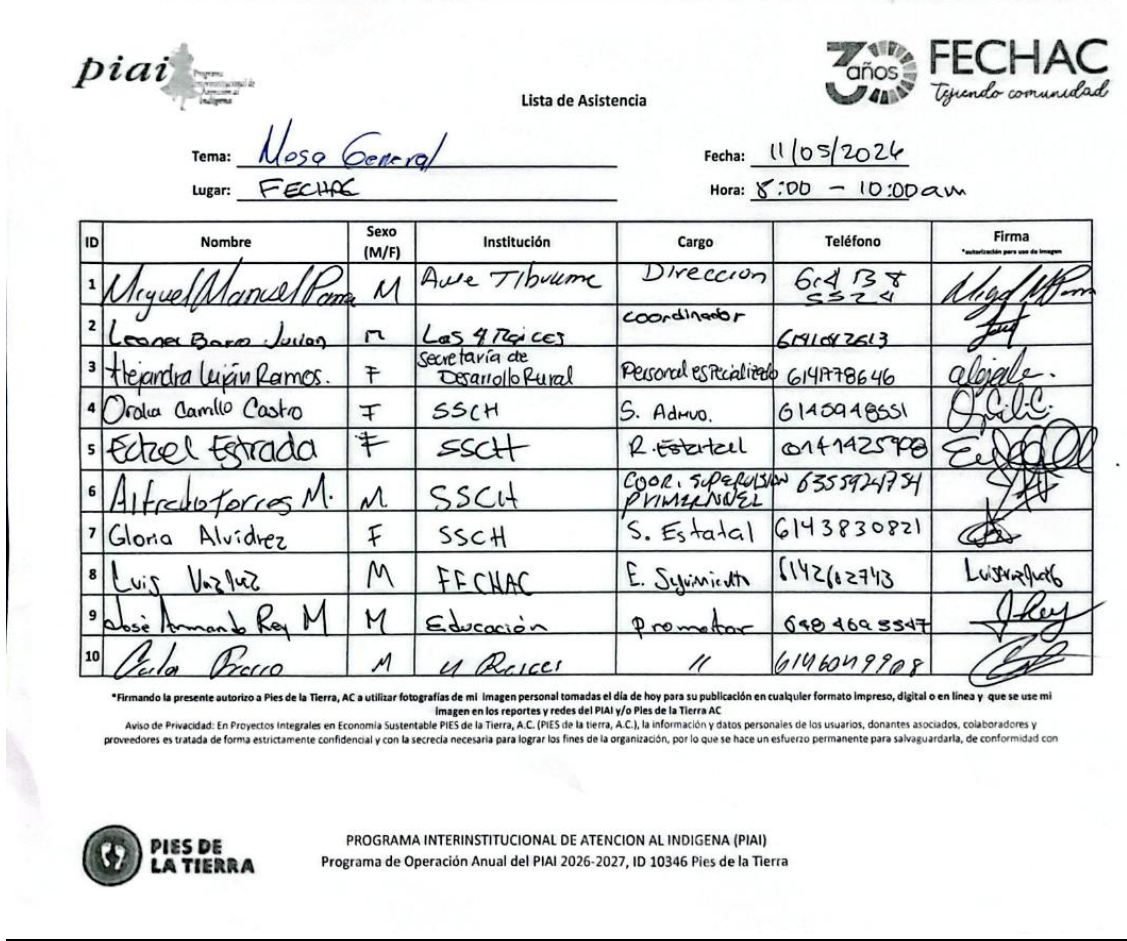 piai
Programa Interinstitucional de Atención al Indígena
30 años FECHAC
Tejiendo comunidad
Lista de Asistencia
Tema: Mesa General Fecha: 11/05/2026
Lugar: FECHAC Hora: 8:00 - 10:00am
ID Nombre Sexo (M/F) Institución Cargo Teléfono Firma
*autorización para uso de imagen
1 Miguel Manuel Parra M Awe Tibuame Dirección 614 138 5524
2 Leonel Barro Julian M Las 4 Raices coordinador
3 Alejandra Luján Ramos. F Secretaría de Desarrollo Rural Personal especializado 614178646
4 Oralia Carrillo Castro F SSCH S. Admvo. 6145948551
5 Etzel Estrada F SSCH R. Estatal
6 Alfredo Torres M. M SSCH COOR. SUPERVISION 6355924754
7 Gloria Alvidrez F SSCH S. Estatal 6143830821
8 Luis Vazquez M FECHAC E. Seguimiento 6142602743
9 José Armando Rey M M Educación Promotor J. Rey
10 M 4 Raices "
*Firmando la presente autorizo a Pies de la Tierra, AC a utilizar fotografías de mi imagen personal tomadas el día de hoy para su publicación en cualquier formato impreso, digital o en línea y que se use mi
imagen en los reportes y redes del PIAI y/o Pies de la Tierra AC
Aviso de Privacidad: En Proyectos Integrales en Economía Sustentable PIES de la Tierra, A.C. (PIES de la tierra, A.C.), la información y datos personales de los usuarios, donantes asociados, colaboradores y
proveedores es tratada de forma estrictamente confidencial y con la secrecía necesaria para lograr los fines de la organización, por lo que se hace un esfuerzo permanente para salvaguardarla, de conformidad con
PIES DE
LA TIERRA
PROGRAMA INTERINSTITUCIONAL DE ATENCION AL INDIGENA (PIAI)
Programa de Operación Anual del PIAI 2026-2027, ID 10346 Pies de la Tierra